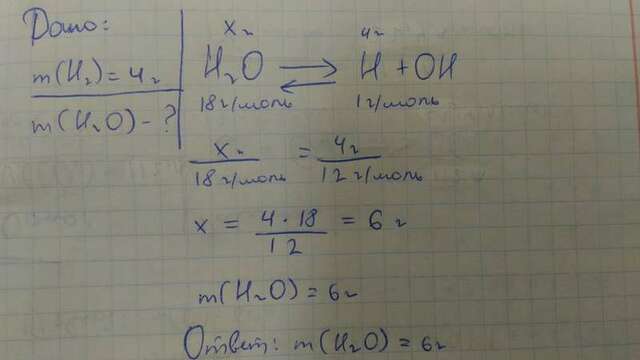 Дано:
m(H₂) = 4г
m(H₂O) - ?
xг 4г
H₂O ⇄ H + OH
18 г/моль 1 г/моль
xг / 18 г/моль = 4г / 12 г/моль
x = 4 · 18 / 12 = 6 г
m(H₂O) = 6г
Ответ: m(H₂O) = 6г